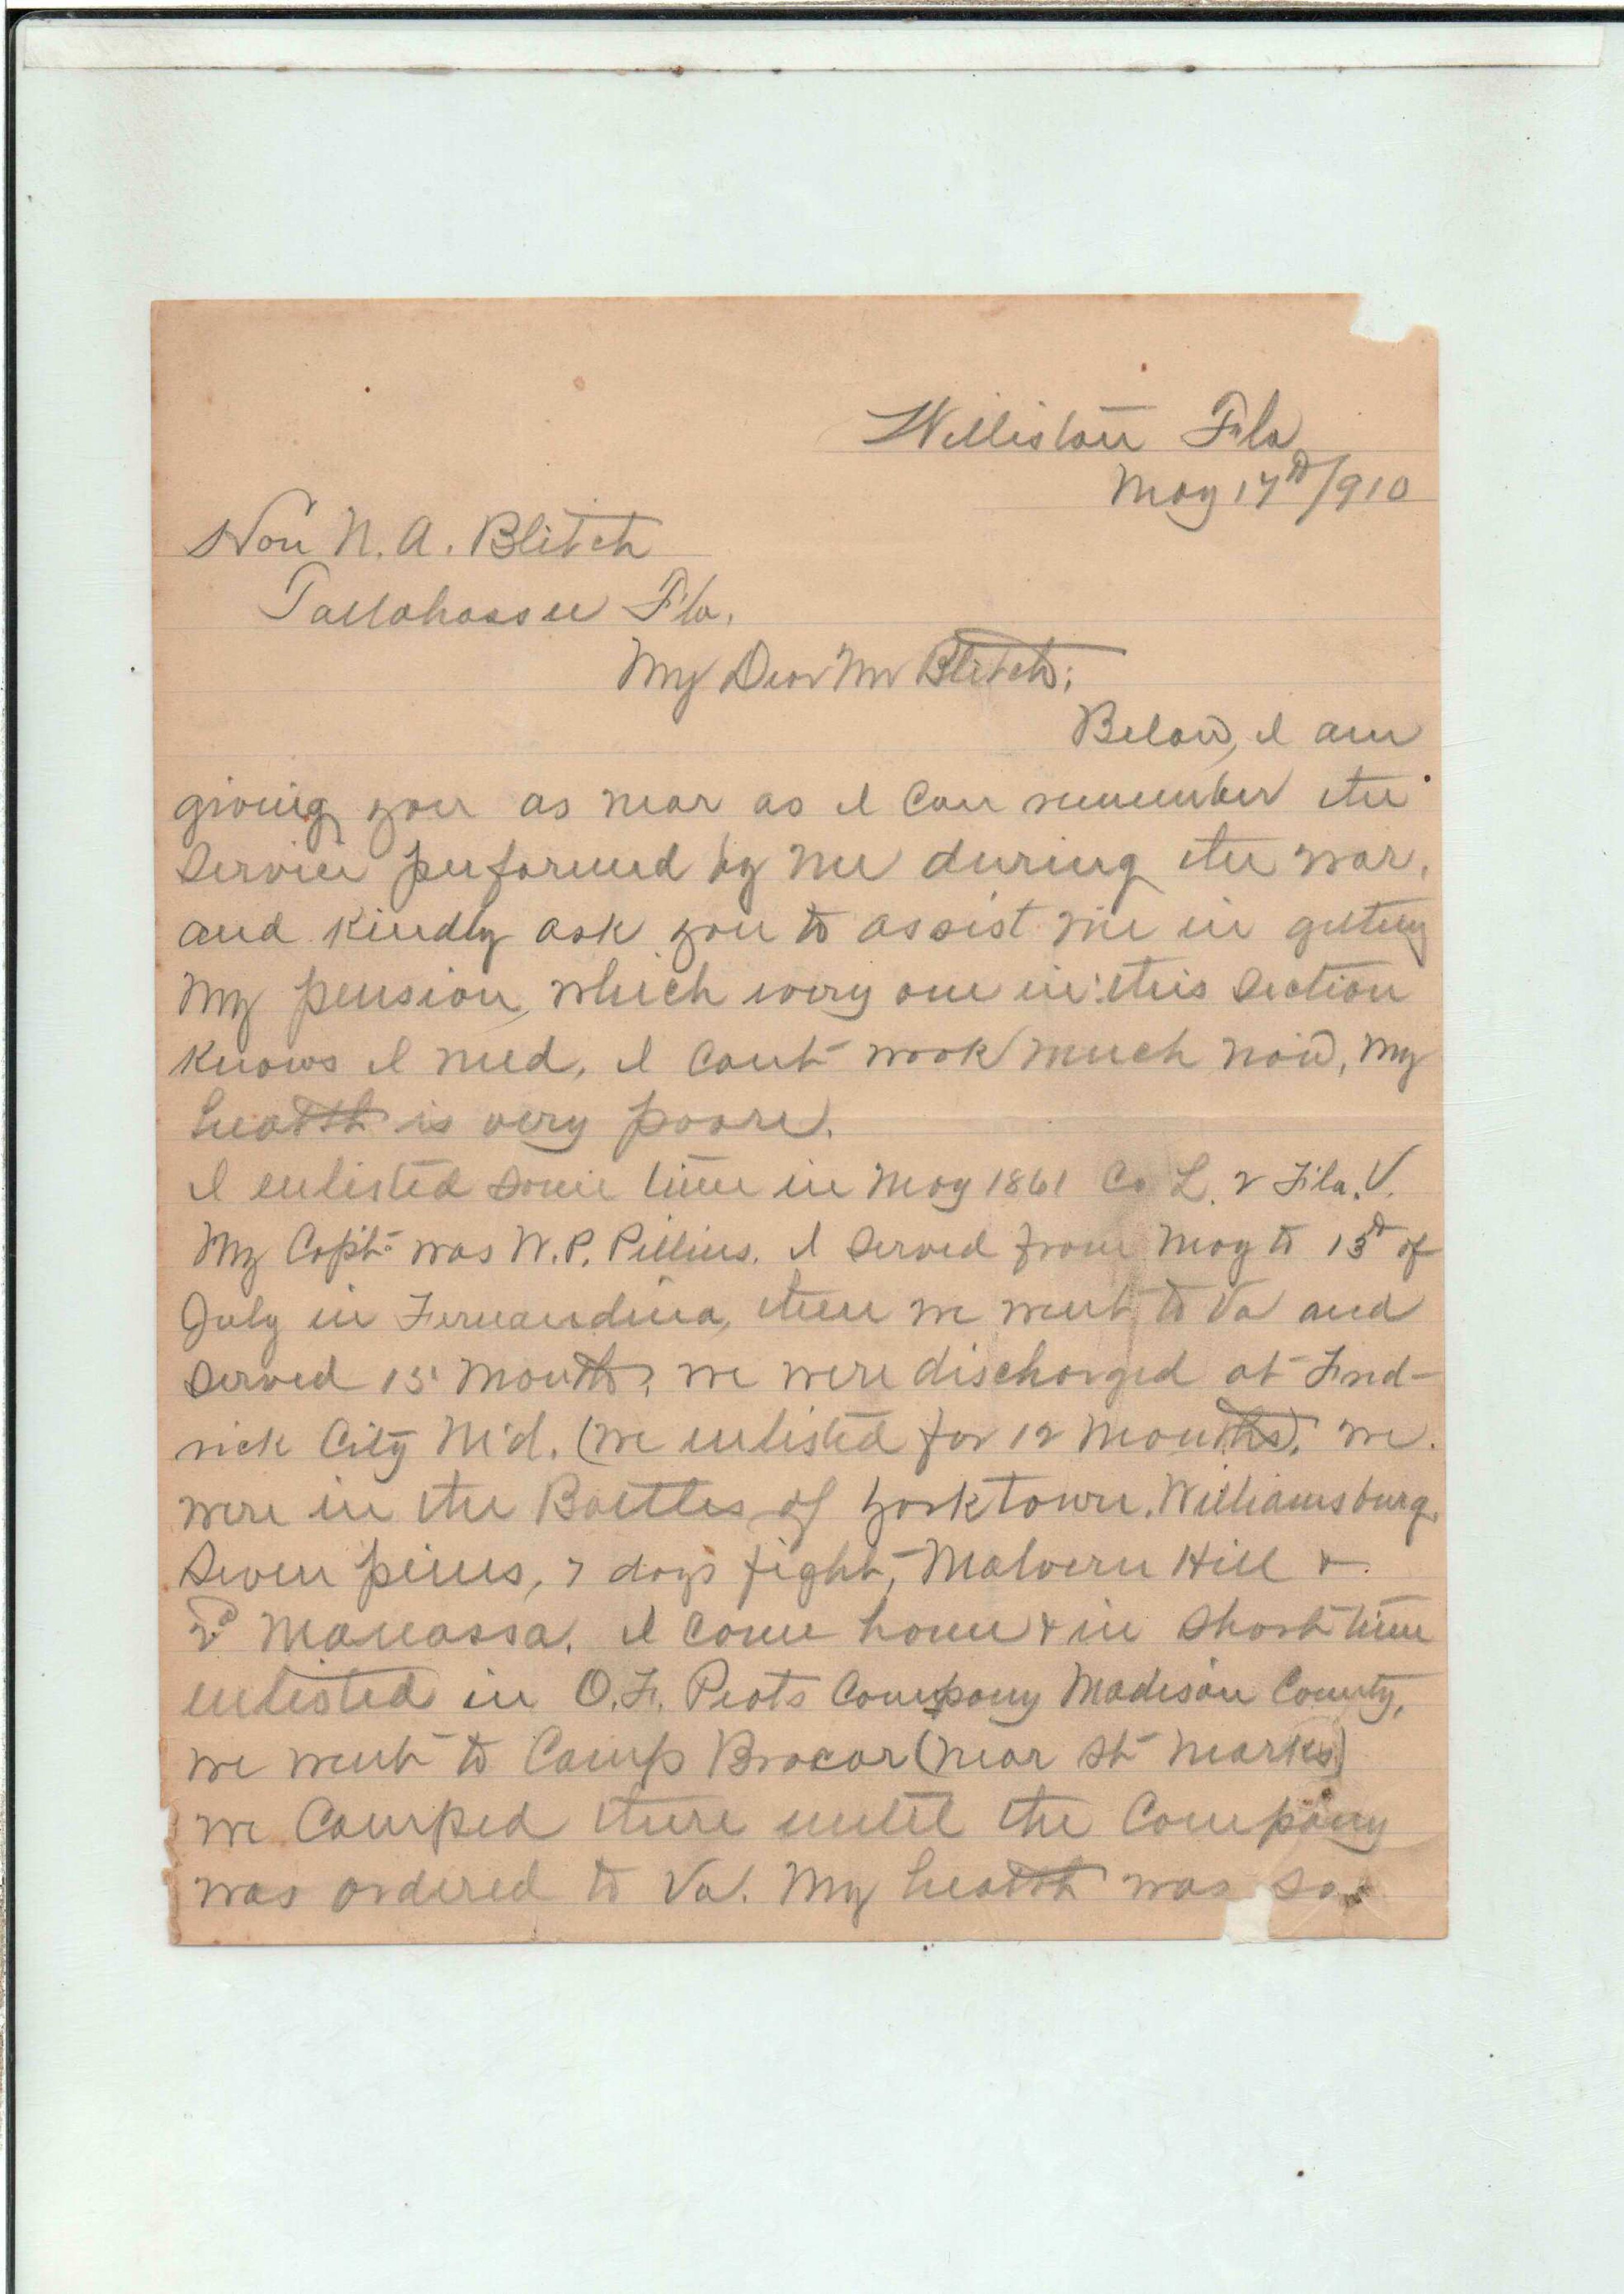 Williston Fla
May 17th/910
Hon N. A. Blitch
Tallahassee Fla.
My Dear Mr Blitch;
Below, I am
giving you as near as I can remember the
service performed by me during the war,
and kindly ask you to assist me in getting
my pension, which every one in this section
knows I need, I cant work much now, my
health is very poore.
I enlisted some time in May 1861 Co L. 2 Fla. V.
My Capt. was W. P. Pillins. I served from May to 13th of
July in Fernandina, then we went to Va and
served 15 months, we were discharged at Fred-
rick City Md. (we enlisted for 12 months). we
were in the Battles of Yorktown. Williamsburg.
Seven pines, 7 days fight, Malvern Hill &
2d Manassa. I come home & in short time
enlisted in O. F. Peots Company Madison County,
we went to Camp Brocar (near St Marks)
we camped there until the Company
was ordered to Va. My health was so